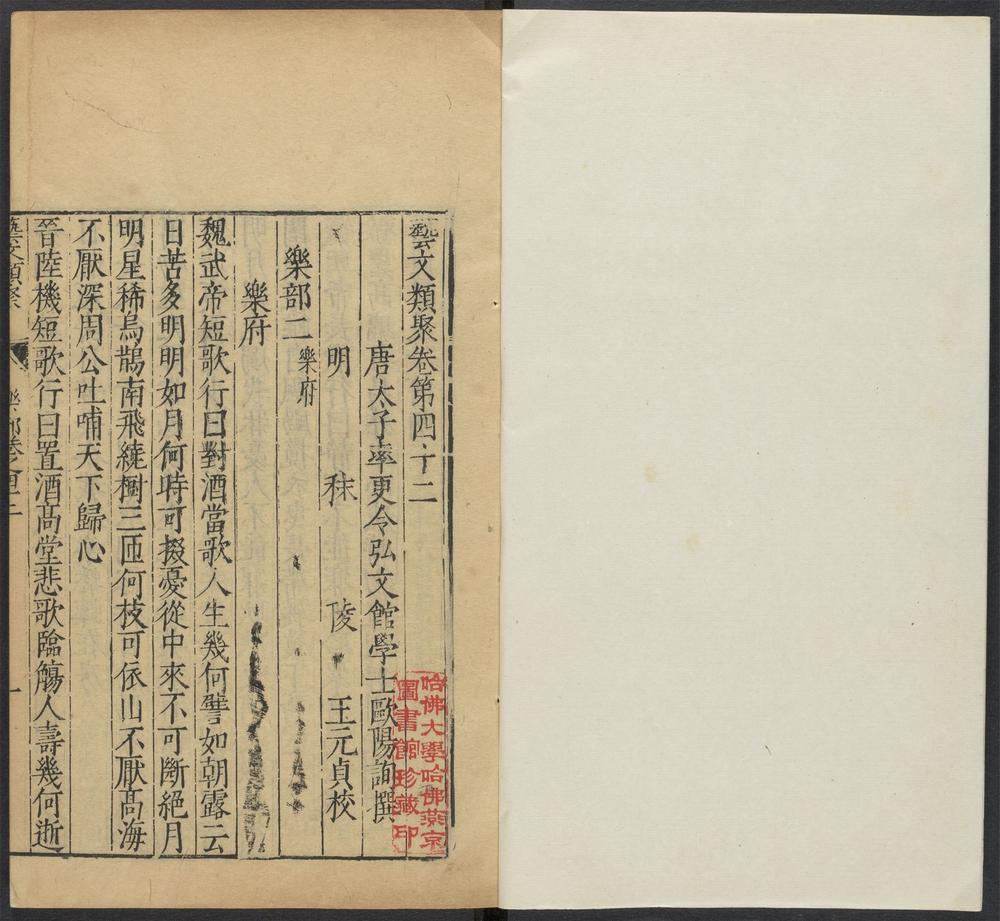 藝文類聚卷第四十二
唐太子率更令弘文館學士歐陽詢撰
明 秣 陵 王元貞校
樂部二 樂府
樂府
魏武帝短歌行曰對酒當歌人生幾何譬如朝露云
日苦多明明如月何時可掇憂從中來不可斷絕月
明星稀烏鵲南飛繞樹三匝何枝可依山不厭髙海
不厭深周公吐哺天下歸心
晉陸機短歌行曰置酒髙堂悲歌臨觴人壽幾何逝
藝文類聚 樂部卷之四十二 一
哈佛大學哈佛燕京
圖書館珍藏印